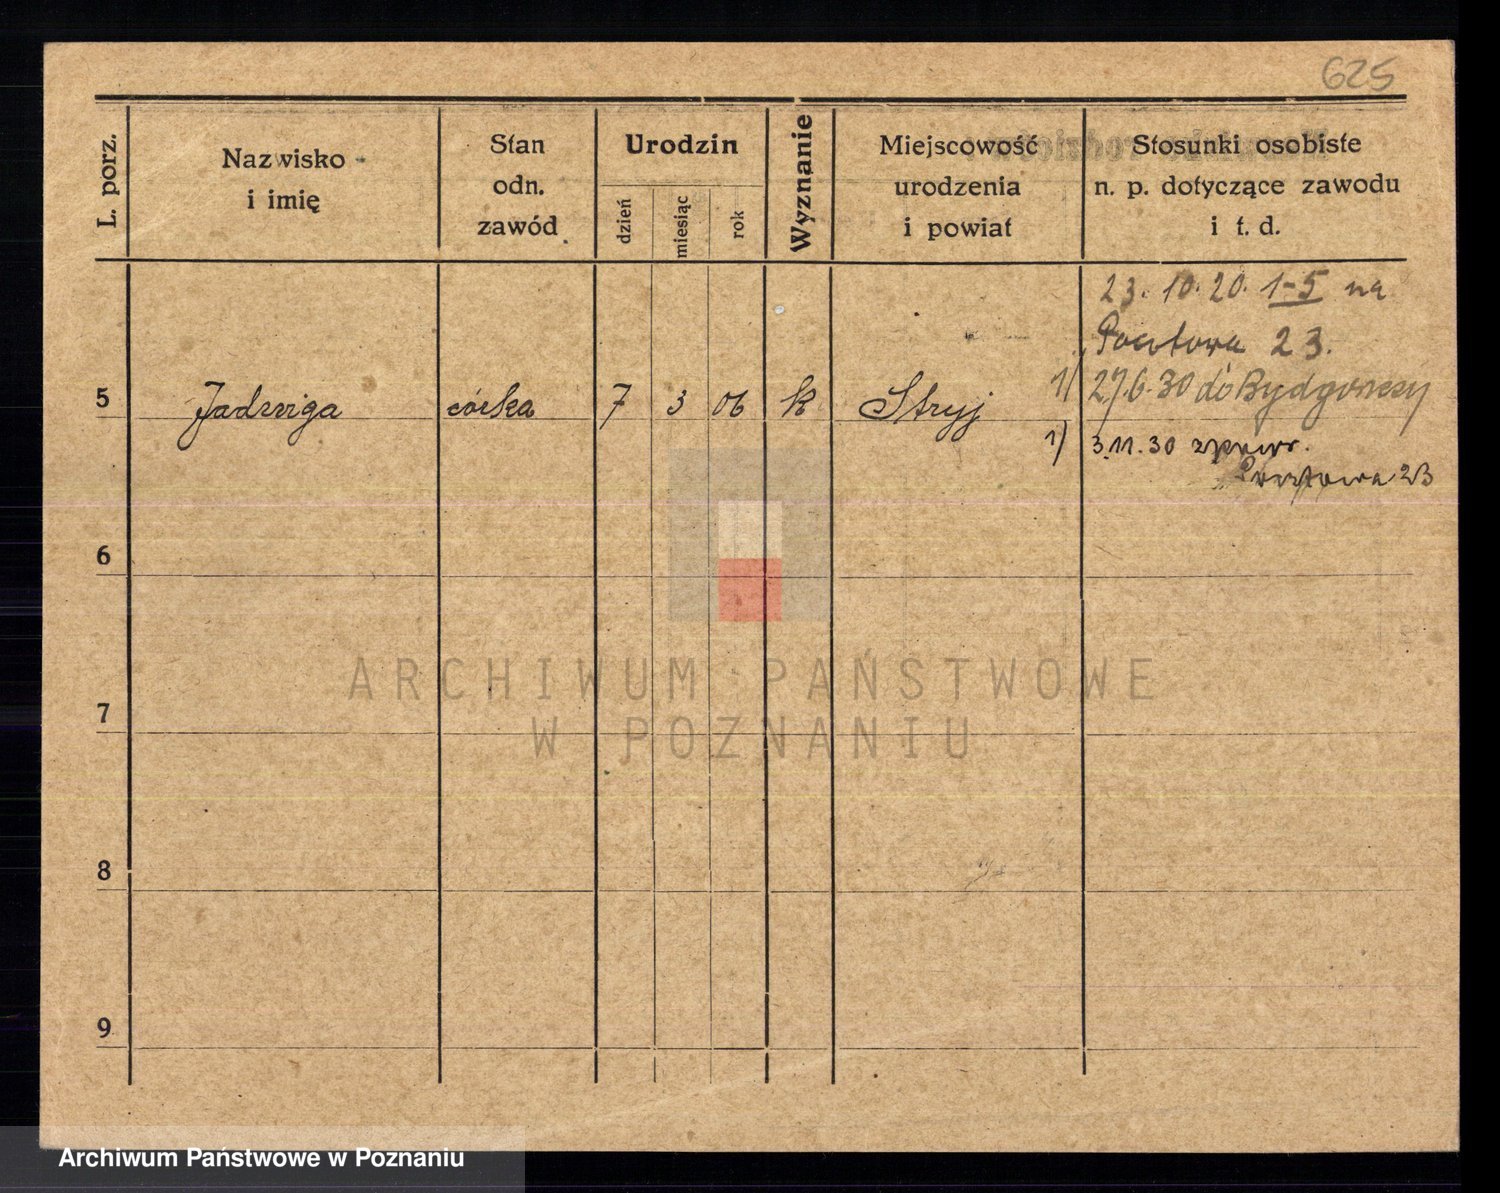 625
L. porz.
Nazwisko
i imię
Stan
odn.
zawód
Urodzin
dzień
miesiąc
rok
Wyznanie
Miejscowość
urodzenia
i powiat
Stosunki osobiste
n. p. dotyczące zawodu
i t. d.
23. 10. 20. 1-5 na
Pocztowa 23.
5 Jadwiga córka 7 3 06 k Stryj
1) 27.6.30 do Bydgoszczy
1) 3.11.30 zpowr.
Pocztowa 23
6
7
8
9
ARCHIWUM PAŃSTWOWE
W POZNANIU
Archiwum Państwowe w Poznaniu